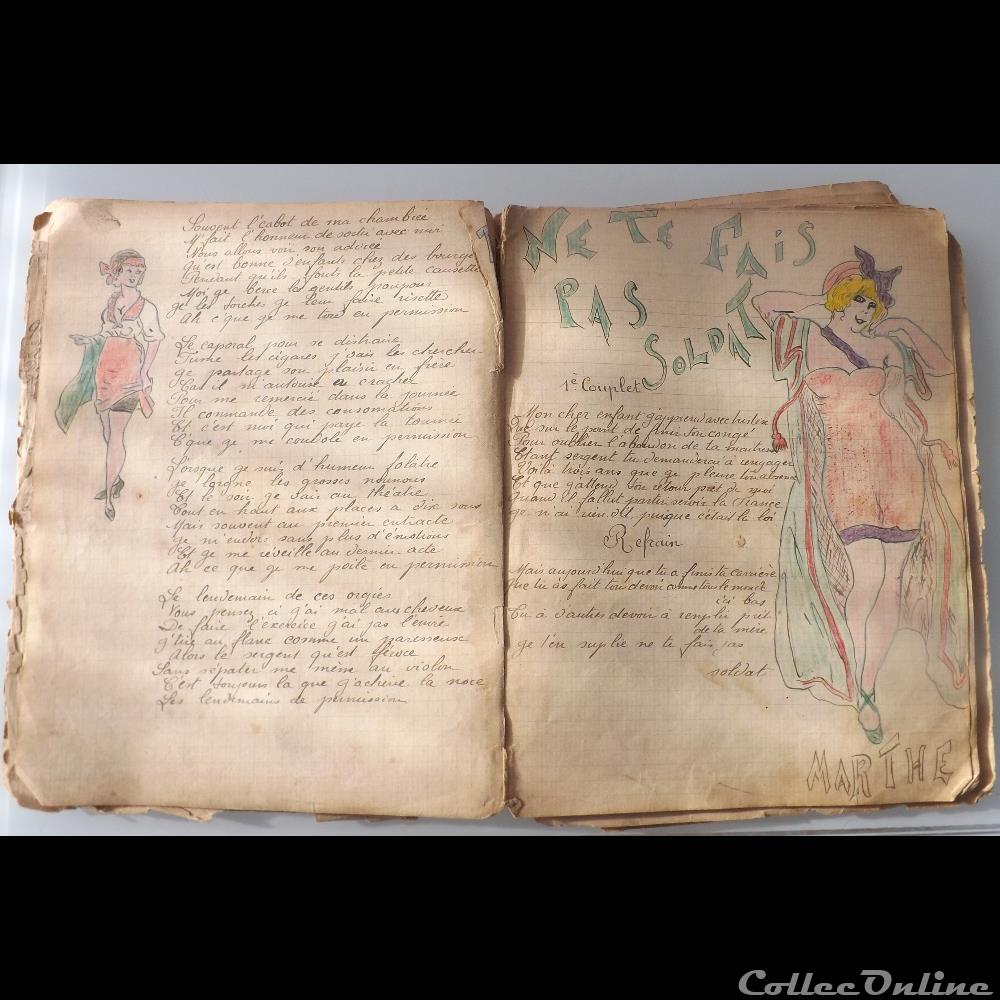 Souvent l'cabot de ma chambrée
M'fait l'honneur de sortir avec moi
Nous allons voir son adorée
Qu'est bonne d'enfants chez des bourgeois
Pendant qu'ils font la petite causette
Moi je berce les gentils poupons
je les torche je leur faire risette
Ah c'que je me tors en permission
Le caporal pour se distraire
Fume les cigares j'vais les chercher
je partage son plaisir en frère
Car il m'autorise a cracher
Pour me remercié dans la journée
Il commande des consomations
Et c'est moi qui paye la tournée
C'que je me gondole en permission
Lorsque je suis d'humeur folâtre
je lorgne les grosses nounous
Et le soir je vais au théatre
Tout en haut aux places a dix sous
Mais souvent au premier entracte
je m'endors sans plus d'émotions
Et je me réveille au dernier acte
Ah ce que je me poile en permission
Le lendemain de ces orgies
Vous pensez ci j'ai mal aux cheveux
De faire l'exercice j'ai pas l'envie
j'tire au flanc comme un paresseux
Alors le sergent qu'est féroce
Sans s'épater me mène au violon
C'est toujours la que j'achève la noce
Les lendemains de permission
NE TE FAIS
PAS
SOLDAT
1e Couplet
Mon cher enfant j'apprend avec tristesse
Que sur le point de finir ton congé
Pour oublier l'abandon de ta maitresse
Etant sergent tu demanderai à rengager
Voilà trois ans que je pleure ton absence
Et que j'attend ton retour près de moi
Quand il fallut partir servir la France
je n'ai rien dit, puisque c'était la loi
Refrain
Mais aujourd'hui que tu a finis ta carrière
Que tu as fait ton devoir comme tout le monde
ici bas
Tu à d'autres devoir à remplir près
de ta mère
je t'en suplie ne te fais pas
soldat
MARTHE
CollecOnline